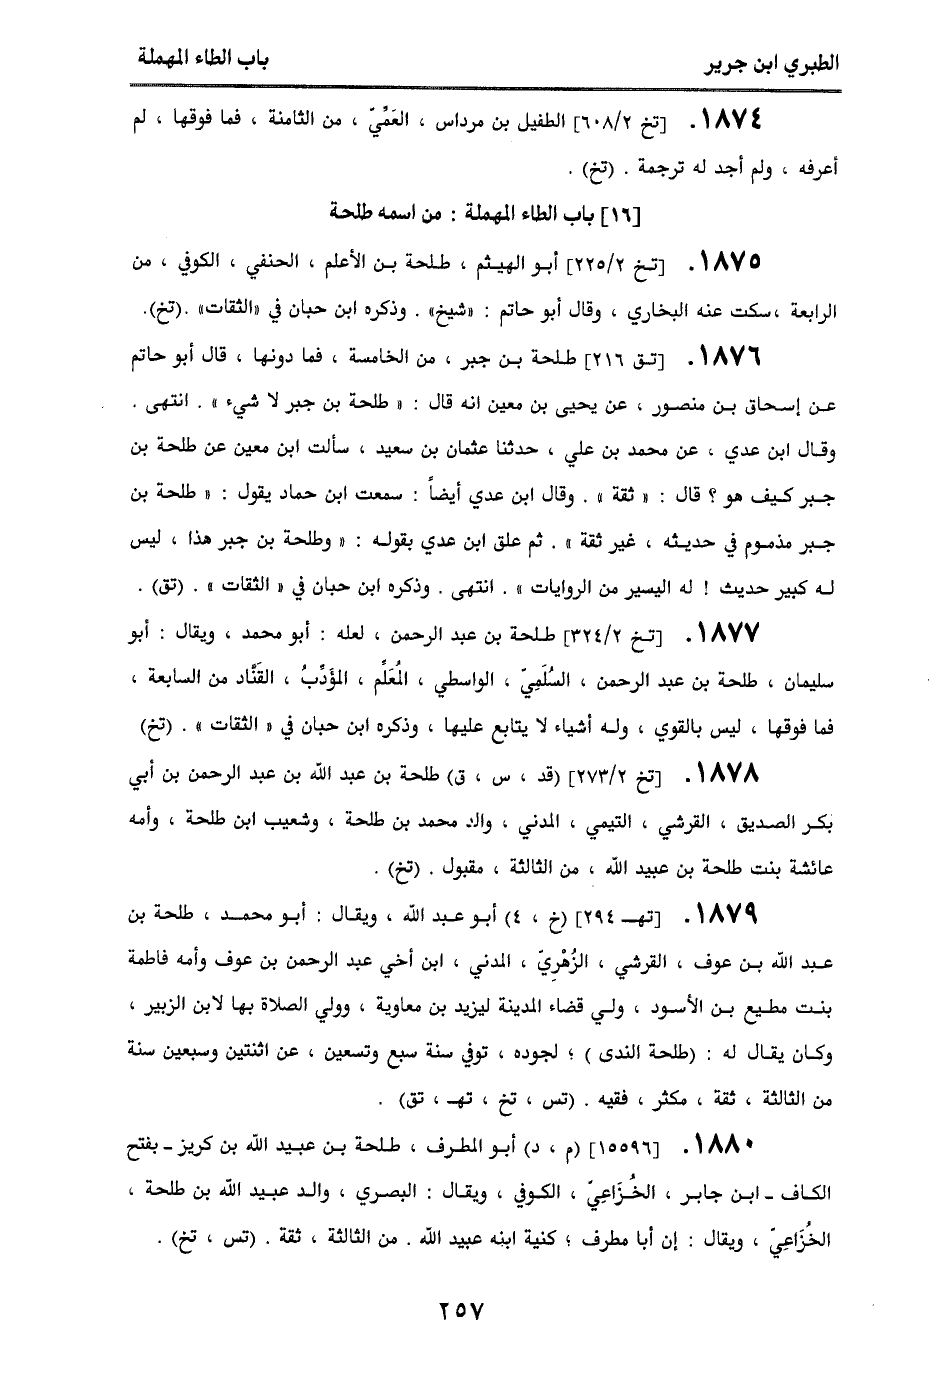 الطبري ابن جرير
باب الطاء المهملة
١٨٧٤. [تخ ٦٠٨/٢] الطفيل بن مرداس ، العَمِّيّ ، من الثامنة ، فما فوقها ، لم
أعرفه ، ولم أجد له ترجمة . (تخ) .
[١٦] باب الطاء المهملة : من اسمه طلحة
١٨٧٥. [تخ ٢٢٥/٢] أبو الهيثم ، طلحة بن الأعلم ، الحنفي ، الكوفي ، من
الرابعة ،سكت عنه البخاري ، وقال أبو حاتم : «شيخ» . وذكره ابن حبان في «الثقات» .(تخ).
١٨٧٦. [تق ٢١٦] طلحة بن جبر ، من الخامسة ، فما دونها ، قال أبو حاتم
عن إسحاق بن منصور ، عن يحيى بن معين انه قال : « طلحة بن جبر لا شيء » . انتهى .
وقال ابن عدي ، عن محمد بن علي ، حدثنا عثمان بن سعيد ، سألت ابن معين عن طلحة بن
جبر كيف هو ؟ قال : « ثقة » . وقال ابن عدي أيضاً : سمعت ابن حماد يقول : « طلحة بن
جبر مذموم في حديثه ، غير ثقة » . ثم علق ابن عدي بقوله : « وطلحة بن جبر هذا ، ليس
له كبير حديث ! له اليسير من الروايات » . انتهى . وذكره ابن حبان في « الثقات » . (تق) .
١٨٧٧. [تخ ٣٢٤/٢] طلحة بن عبد الرحمن ، لعله : أبو محمد ، ويقال : أبو
سليمان ، طلحة بن عبد الرحمن ، السُلَمِيّ ، الواسطي ، المُعَلِّم ، المؤَدِّبُ ، القَنَّاد من السابعة ،
فما فوقها ، ليس بالقوي ، وله أشياء لا يتابع عليها ، وذكره ابن حبان في « الثقات » . (تخ)
١٨٧٨. [تخ ٢٧٣/٢] (قد ، س ، ق) طلحة بن عبد الله بن عبد الرحمن بن أبي
بكر الصديق ، القرشي ، التيمي ، المدني ، والد محمد بن طلحة ، وشعيب ابن طلحة ، وأمه
عائشة بنت طلحة بن عبيد الله ، من الثالثة ، مقبول . (تخ) .
١٨٧٩. [تهـ ٢٩٤] (خ ، ٤) أبو عبد الله ، ويقال : أبو محمد ، طلحة بن
عبد الله بن عوف ، القرشي ، الزُهْرِيّ ، المدني ، ابن أخي عبد الرحمن بن عوف وأمه فاطمة
بنت مطيع بن الأسود ، ولي قضاء المدينة ليزيد بن معاوية ، وولي الصلاة بها لابن الزبير ،
وكان يقال له : (طلحة الندى ) ؛ لجوده ، توفي سنة سبع وتسعين ، عن اثنتين وسبعين سنة
من الثالثة ، ثقة ، مكثر ، فقيه . (تس ، تخ ، تهـ ، تق) .
١٨٨٠. [١٥٥٩٦] (م ، د) أبو المطرف ، طلحة بن عبيد الله بن كريز ـ بفتح
الكاف ـ ابن جابر ، الخُزَاعِيّ ، الكوفي ، ويقال : البصري ، والد عبيد الله بن طلحة ،
الخُزَاعِيّ ، ويقال : إن أبا مطرف ؛ كنية ابنه عبيد الله . من الثالثة ، ثقة . (تس ، تخ) .
٢٥٧